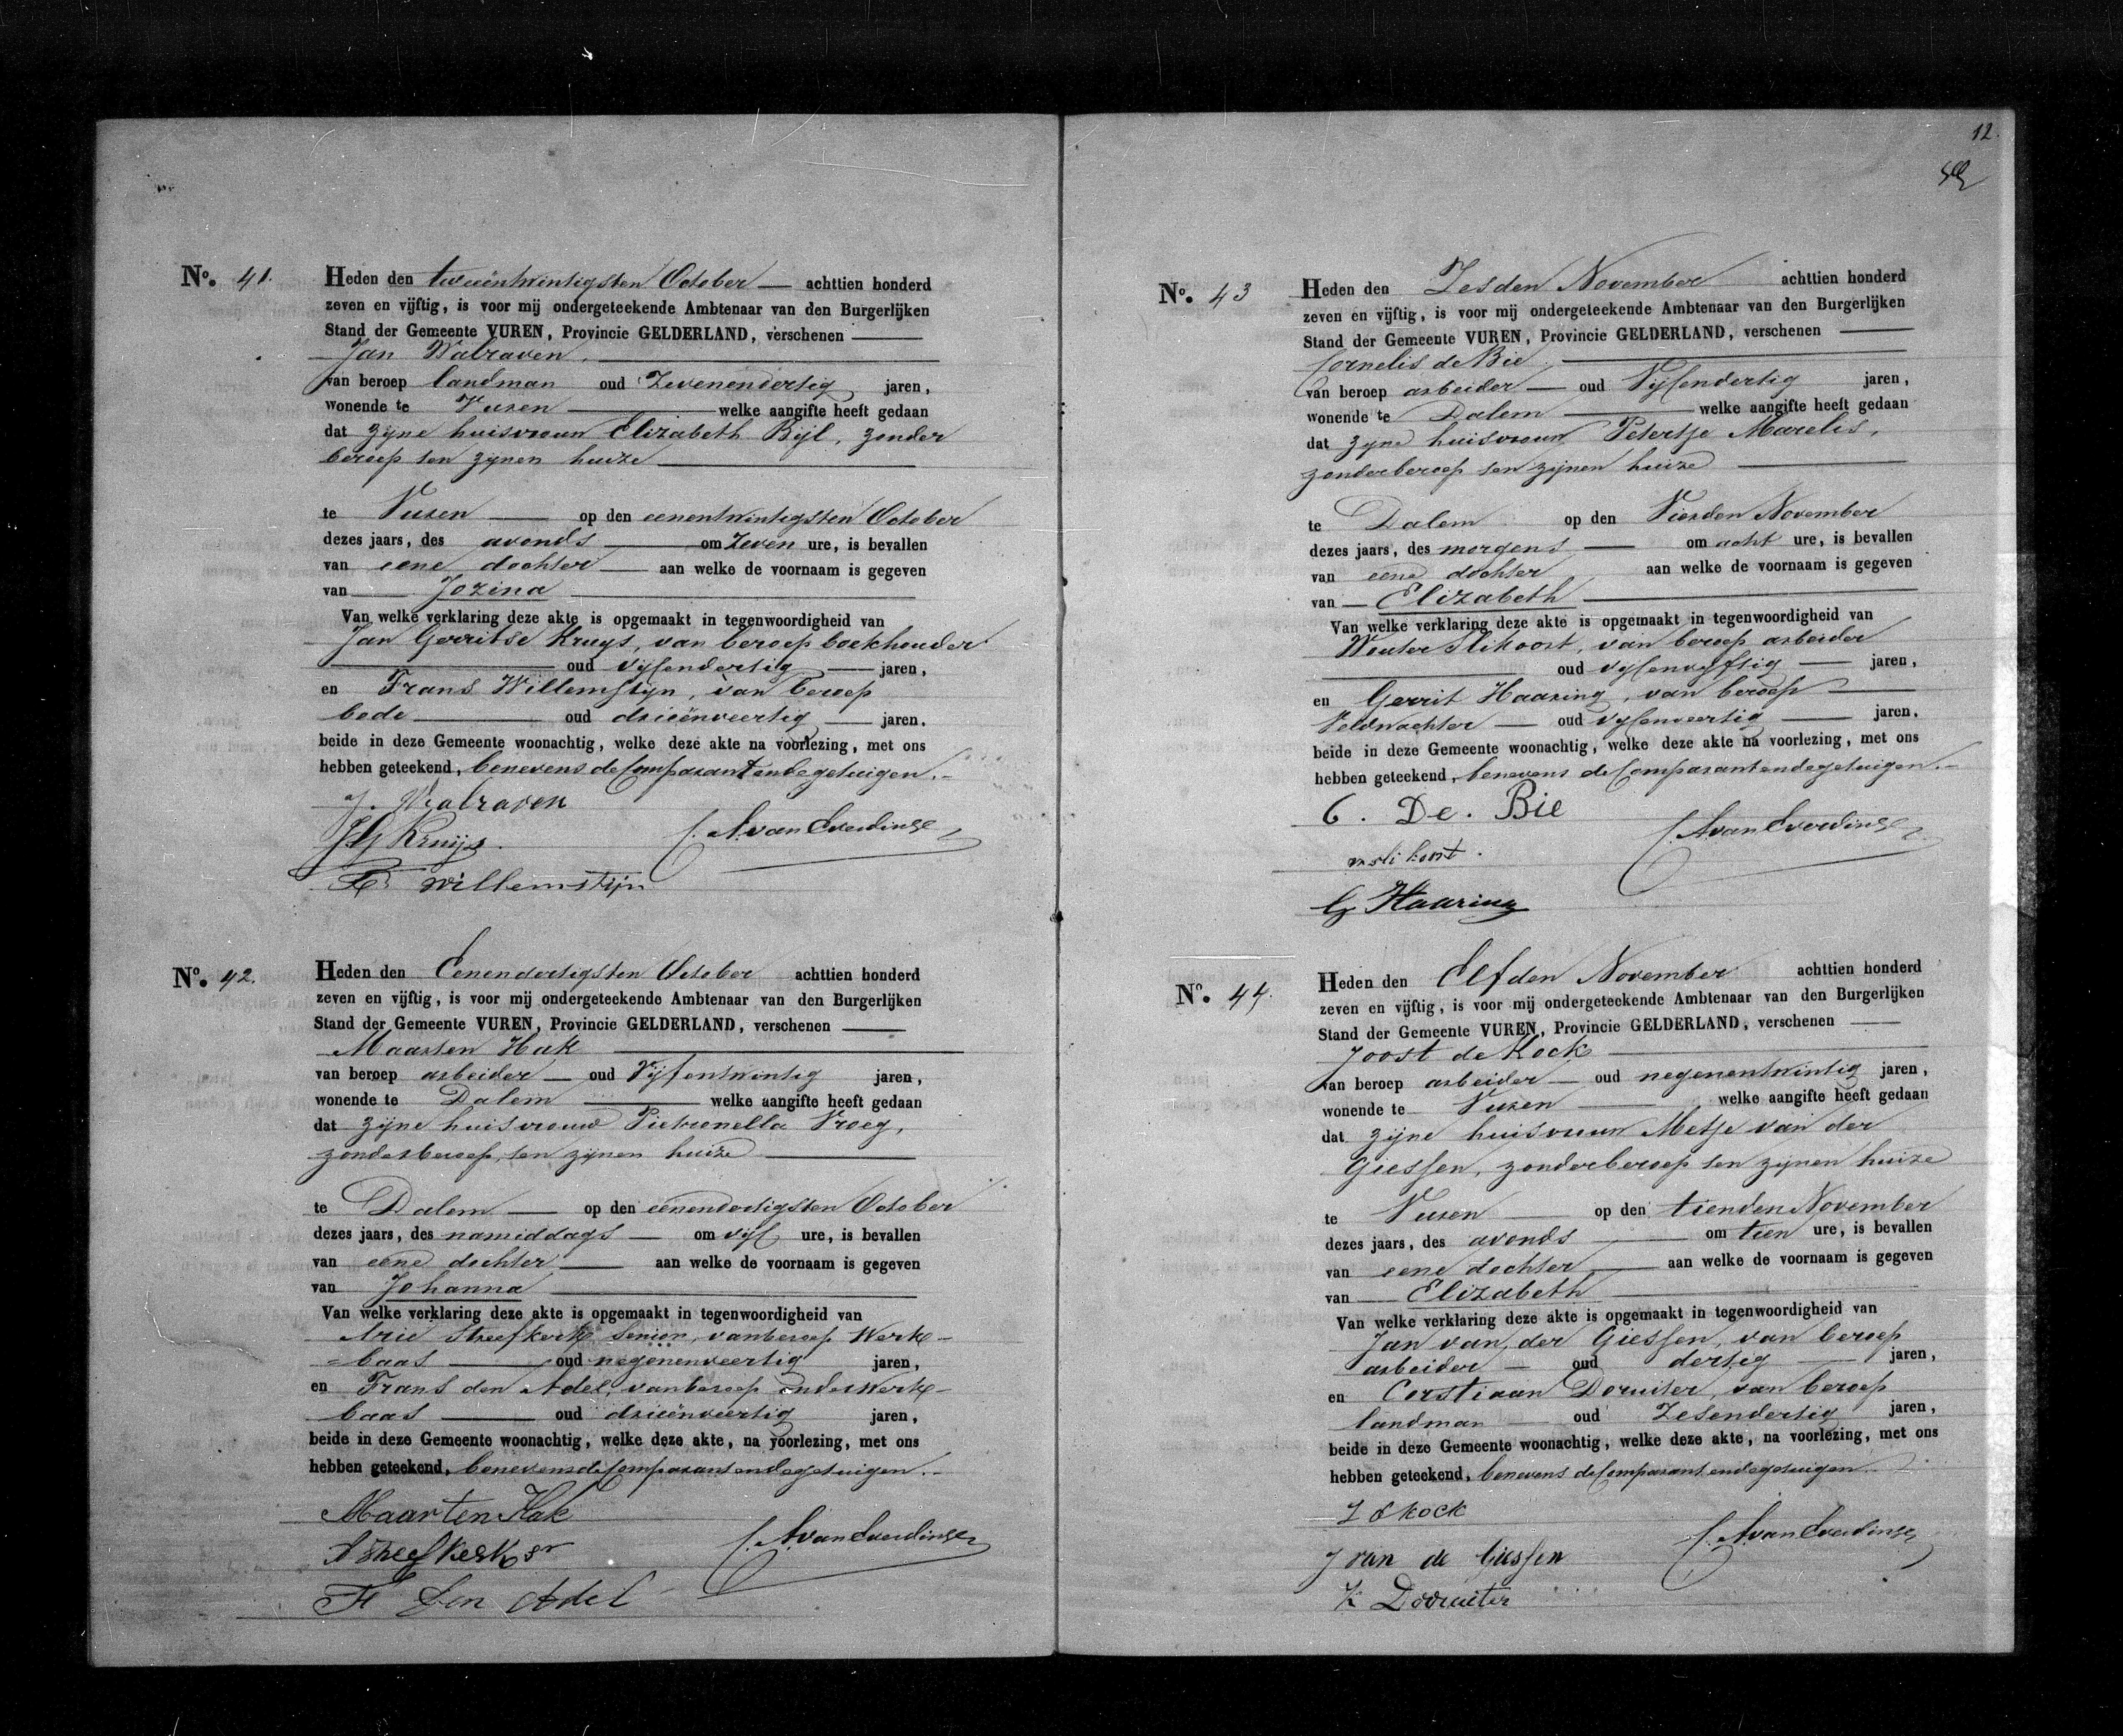 No. 41.
Heden den tweeëntwintigsten October achttien honderd
zeven en vijftig, is voor mij ondergeteekende Ambtenaar van den Burgerlijken
Stand der Gemeente VUREN, Provincie GELDERLAND, verschenen
Jan Walraven,
van beroep landman oud Zevenendertig jaren,
wonende te Vuren welke aangifte heeft gedaan
dat zijne huisvrouw Elizabeth Bijl, zonder
beroep ten zijnen huize
te Vuren op den eenentwintigsten October
dezes jaars, des avonds om Zeven ure, is bevallen
van eene dochter aan welke de voornaam is gegeven
van Jozina
Van welke verklaring deze akte is opgemaakt in tegenwoordigheid van
Jan Gerritse Kruys, van beroep boekhouder
oud vijfendertig jaren,
en Frans Willemstijn, van beroep
bode oud drieënveertig jaren.
beide in deze Gemeente woonachtig, welke deze akte na voorlezing, met ons
hebben geteekend, benevens de Comparant en de getuigen.
J. Walraven
JG Kruijs.
C. A. van Everdinge
F. Willemstijn
No. 42.
Heden den Eenendertigsten October achttien honderd
zeven en vijftig, is voor mij ondergeteekende Ambtenaar van den Burgerlijken
Stand der Gemeente VUREN, Provincie GELDERLAND, verschenen
Maarten Hak
van beroep arbeider oud Vijfentwintig jaren,
wonende te Dalem welke aangifte heeft gedaan
dat zijne huisvrouw Pietronella Vroeg,
zonder beroep, ten zijnen huize
te Dalem op den eenendertigsten October
dezes jaars, des namiddags om vijf ure, is bevallen
van eene dochter aan welke de voornaam is gegeven
van Johanna
Van welke verklaring deze akte is opgemaakt in tegenwoordigheid van
Arie Streefkerk Senior, van beroep Werk-
=baas oud negenenveertig jaren,
en Frans den Adel, van beroep onderwerk-
baas oud drieënveertig jaren,
beide in deze Gemeente woonachtig, welke deze akte, na voorlezing, met ons
hebben geteekend, benevens de Comparant en de getuigen.
Maarten Hak
A Streefkerk sr
C. A. van Everdinge
F den Adel
12.
No. 43
Heden den Zesden November achttien honderd
zeven en vijftig, is voor mij ondergeteekende Ambtenaar van den Burgerlijken
Stand der Gemeente VUREN, Provincie GELDERLAND, verschenen
Cornelis de Bie
van beroep arbeider oud Vijfendertig jaren,
wonende te Dalem welke aangifte heeft gedaan
dat zijne huisvrouw Petertje Marelis,
zonder beroep ten zijnen huize
te Dalem op den Vierden November
dezes jaars, des morgens om acht ure, is bevallen
van eene dochter aan welke de voornaam is gegeven
van Elizabeth
Van welke verklaring deze akte is opgemaakt in tegenwoordigheid van
Wouter Slikoort, van beroep arbeider
oud vijfenvijftig jaren,
en Gerrit Haaring, van beroep
Veldwachter oud vijfenveertig jaren,
beide in deze Gemeente woonachtig, welke deze akte na voorlezing, met ons
hebben geteekend, benevens de Comparant en de getuigen.
C. De. Bie
C. A. van Everdinge
w sli koort.
G Haaring
No. 44.
Heden den Elfden November achttien honderd
zeven en vijftig, is voor mij ondergeteekende Ambtenaar van den Burgerlijken
Stand der Gemeente VUREN, Provincie GELDERLAND, verschenen
Joost de Kock
van beroep arbeider oud negenentwintig jaren,
wonende te Vuren welke aangifte heeft gedaan
dat zijne huisvrouw Metje van der
Giessen, zonder beroep ten zijnen huize
te Vuren op den tienden November
dezes jaars, des avonds om tien ure, is bevallen
van eene dochter aan welke de voornaam is gegeven
van Elizabeth
Van welke verklaring deze akte is opgemaakt in tegenwoordigheid van
Jan van der Giessen, van beroep
arbeider oud dertig jaren,
en Corstiaan Doruiter, van beroep
landman oud Zesendertig jaren,
beide in deze Gemeente woonachtig, welke deze akte, na voorlezing, met ons
hebben geteekend, benevens de Comparant en de getuigen.
J d kock
C. A. van Everdinge
J van de Giessen
K Dooruiter